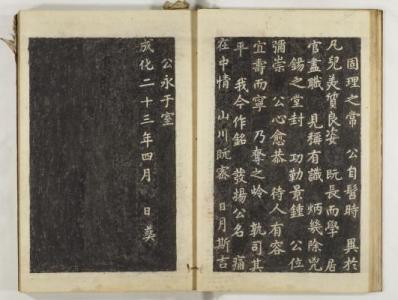 固理之常　公自髫時　異於
凡兒美質良姿　既長而學　居
官盡職　見稱有識　炳幾除兇
錫之堂封　功勤景鍾　公位
彌崇　公心愈恭　待人有容
宜壽而寧　乃奪之齡　孰司其
平　我今作銘　發揚公名　痛
在中情　山川既　日月斯吉
公永于室
成化二十三年四月　日葬